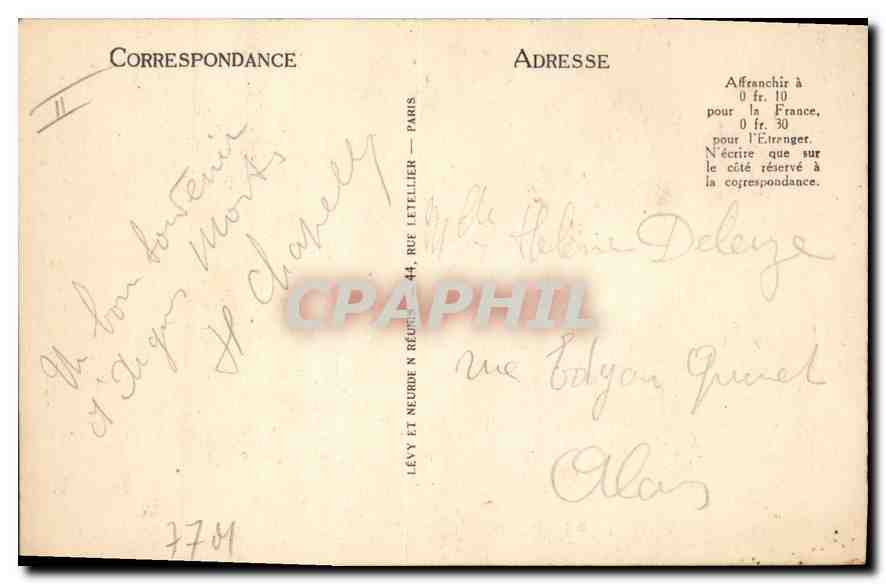 CORRESPONDANCE
ADRESSE
II
Affranchir à
0 fr. 10
pour la France,
0 fr. 30
pour l'Etranger.
N'écrire que sur
le côté réservé à
la correspondance.
Un bon souvenir
d'Aigues Mortes
H. Chapelly
LÉVY ET NEURDEIN RÉUNIS 44, RUE LETELLIER — PARIS
Mlle Hélène Deleuze
rue Edgar Quinet
Alais
CPAPHIL
7701